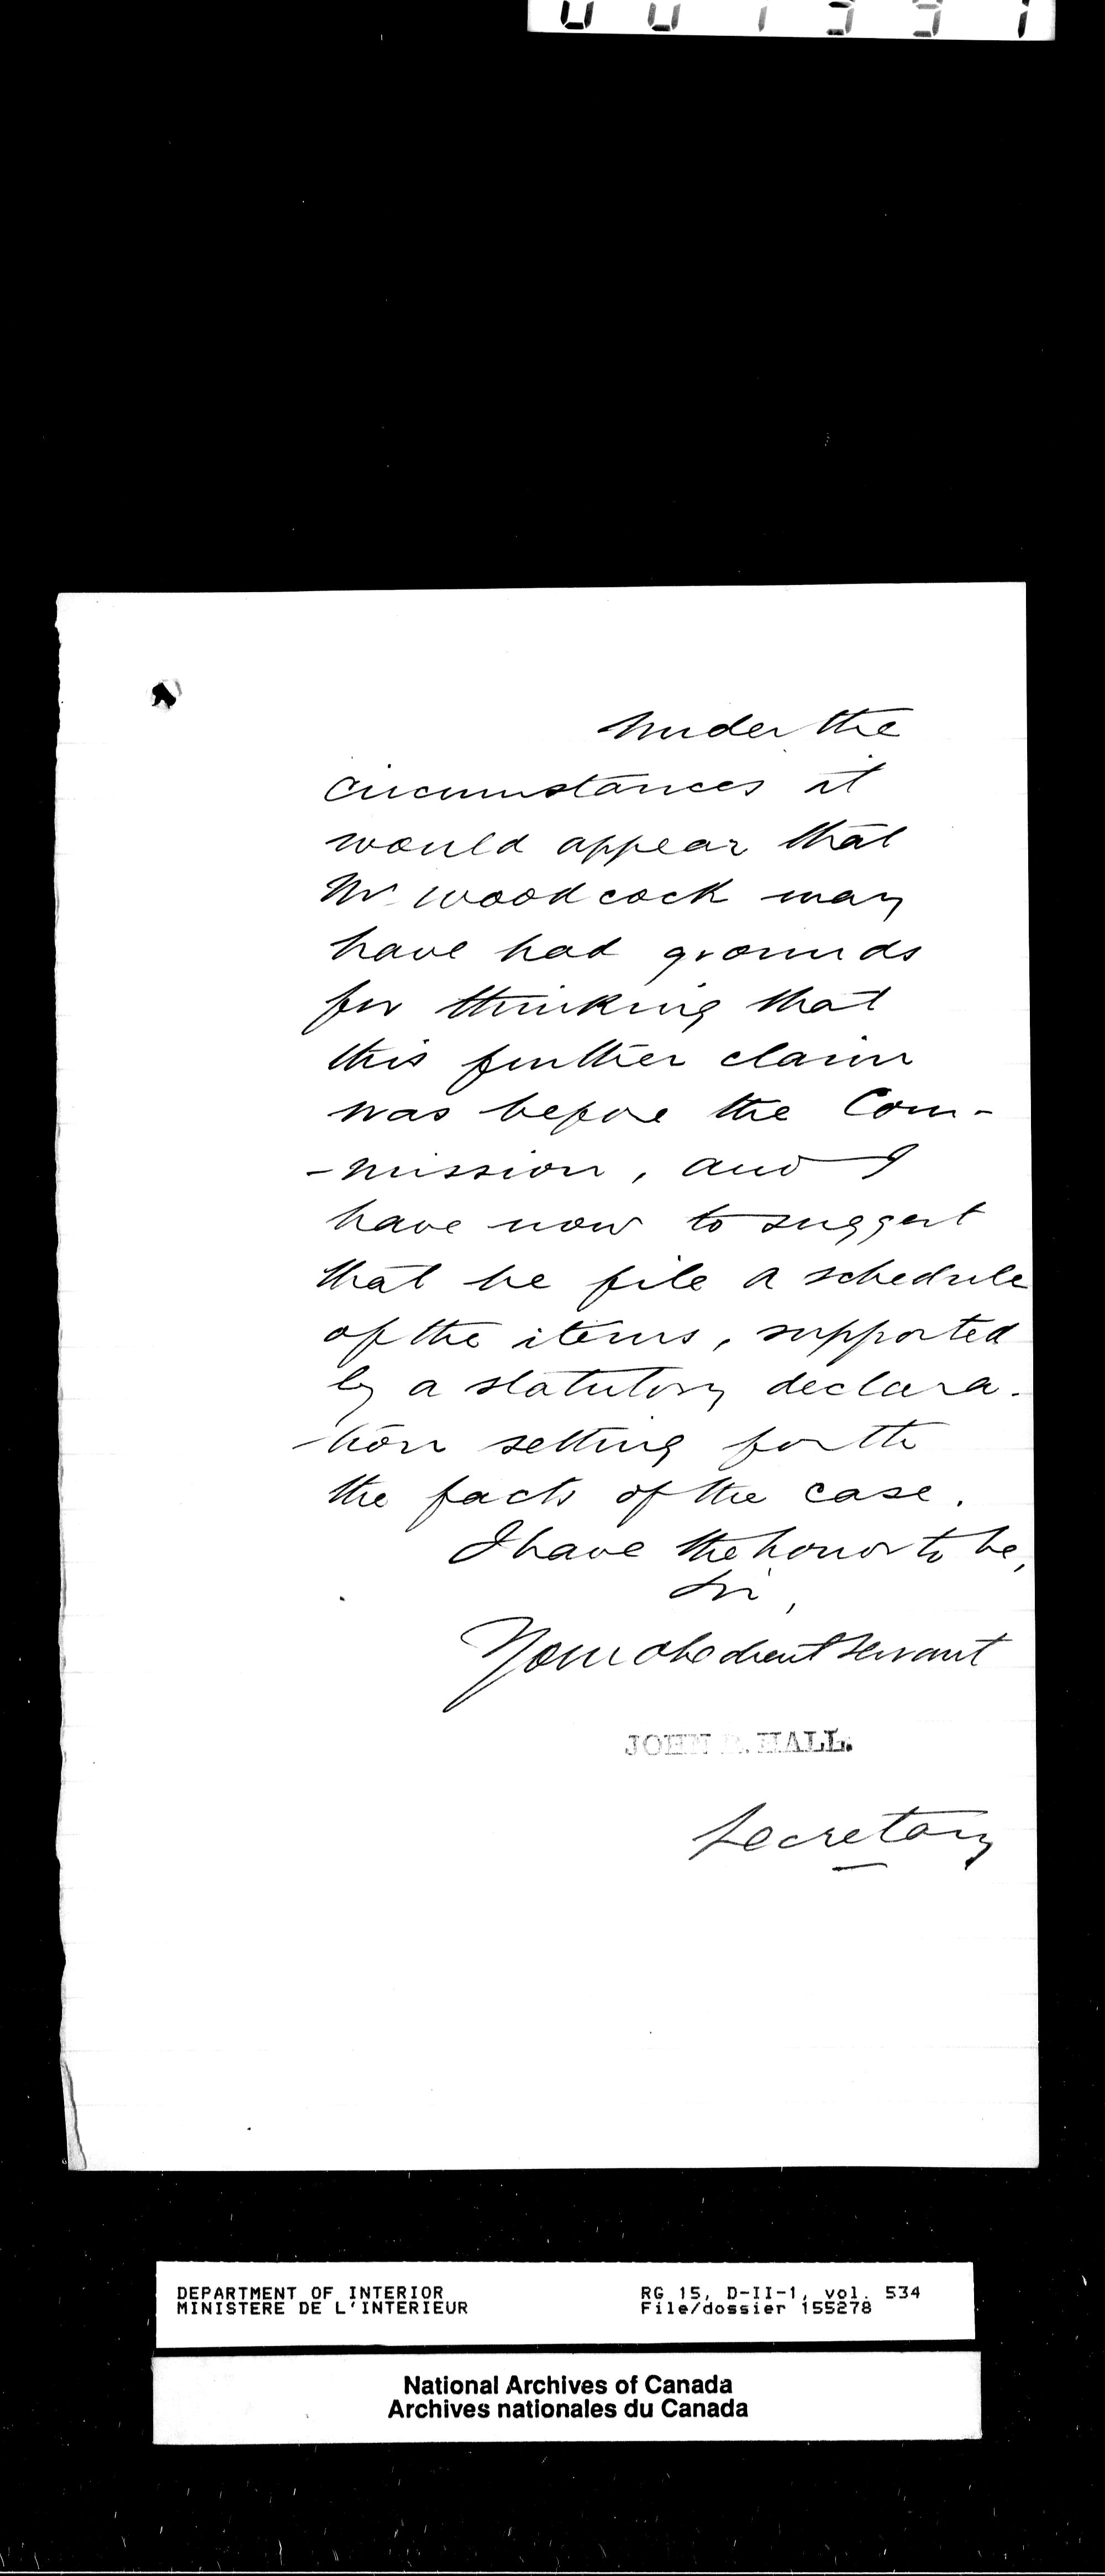 Under the
circumstances it
would appear that
Mr Woodcock may
have had grounds
for thinking that
this further claim
was before the Com-
-mission, and I
have now to suggest
that he file a schedule
of the items, supported
by a statutory declara-
-tion setting forth
the facts of the case.
I have the honor to be,
Sir,
Your obedient servant
JOHN R. HALL.
Secretary
DEPARTMENT OF INTERIOR
MINISTERE DE L'INTERIEUR
RG 15, D-II-1, vol. 534
File/dossier 155278
National Archives of Canada
Archives nationales du Canada